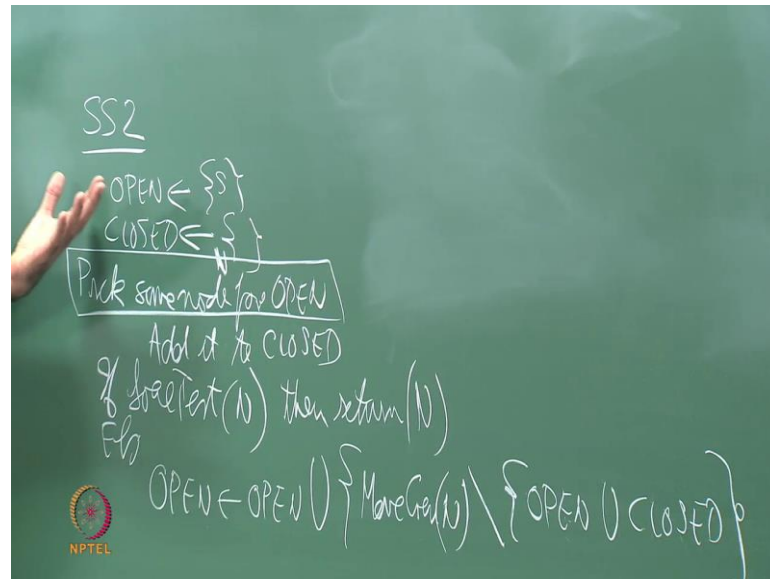 SS2
OPEN ← {S}
CLOSED ← { }
N
Pick some node from OPEN
Add it to CLOSED
If GoalTest(N) then return(N)
Else
OPEN ← OPEN ∪ {MoveGen(N) \ {OPEN ∪ CLOSED}}
NPTEL